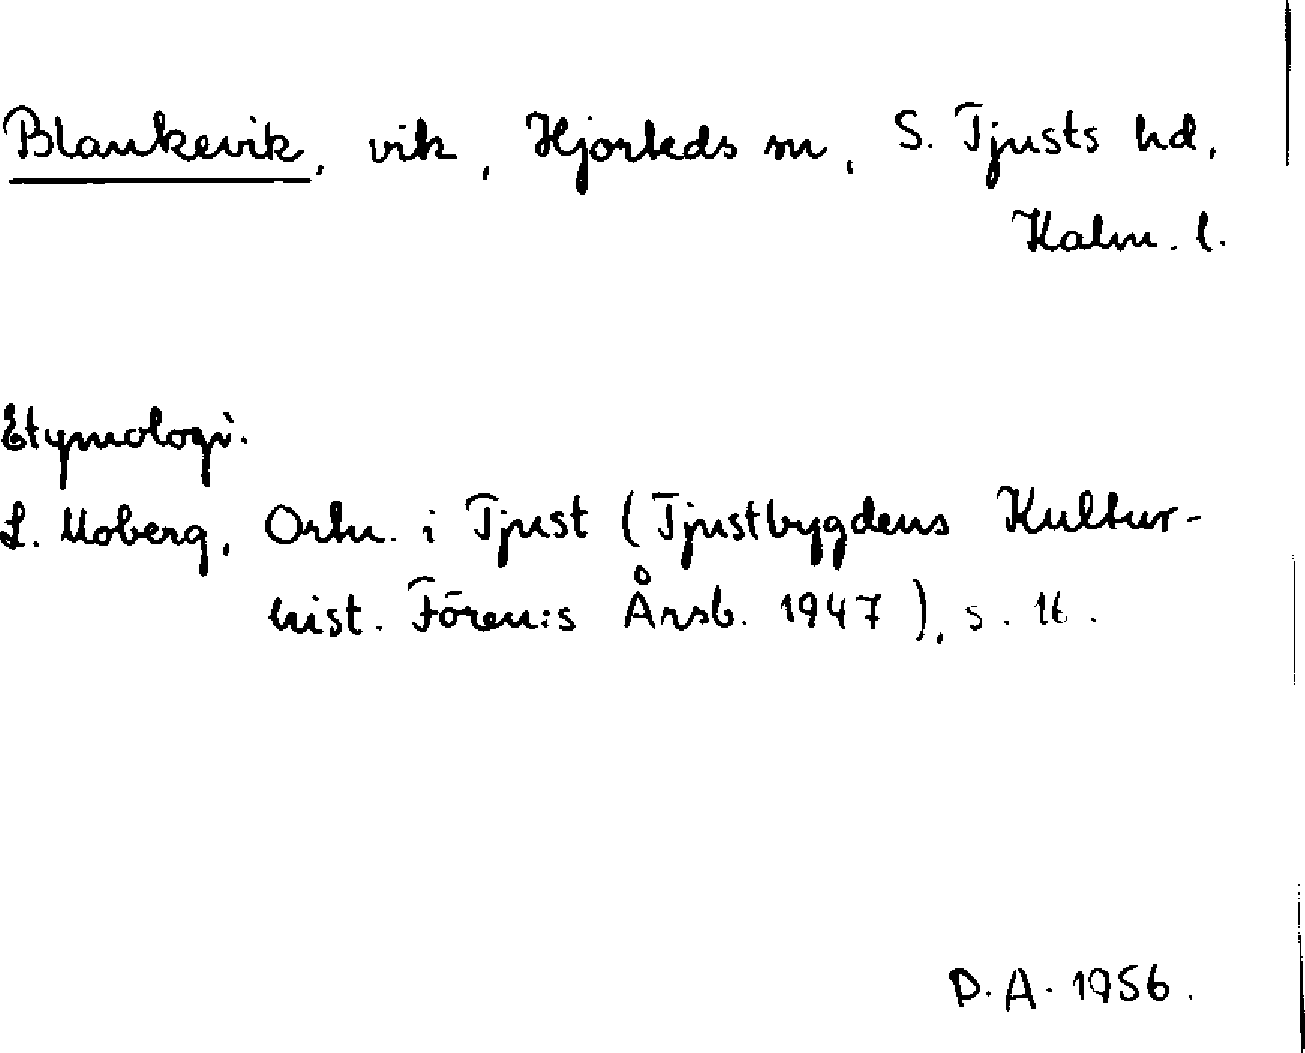 Blankevik, vik, Hjorteds sn, S. Tjusts hd,
Kalm. l.
Etymologi.
L. Moberg, Ortn. i Tjust (Tjustbygdens Kultur-
hist. Fören:s Årsb. 1947), s. 16.
D. A. 1956.